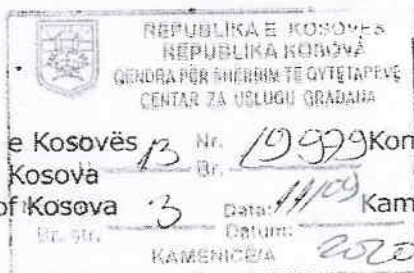 REPUBLIKA E KOSOVËS
REPUBLIKA KOSOVA
QENDRA PËR SHËRBIM TË QYTETARËVE
CENTAR ZA USLUGU GRAĐANA
e Kosovës 13 Nr. 19979 Kom
Kosova Br.
of Kosova 3 Data: 11/09 Kam
Br. str. Datum: 2020
KAMENICË/A